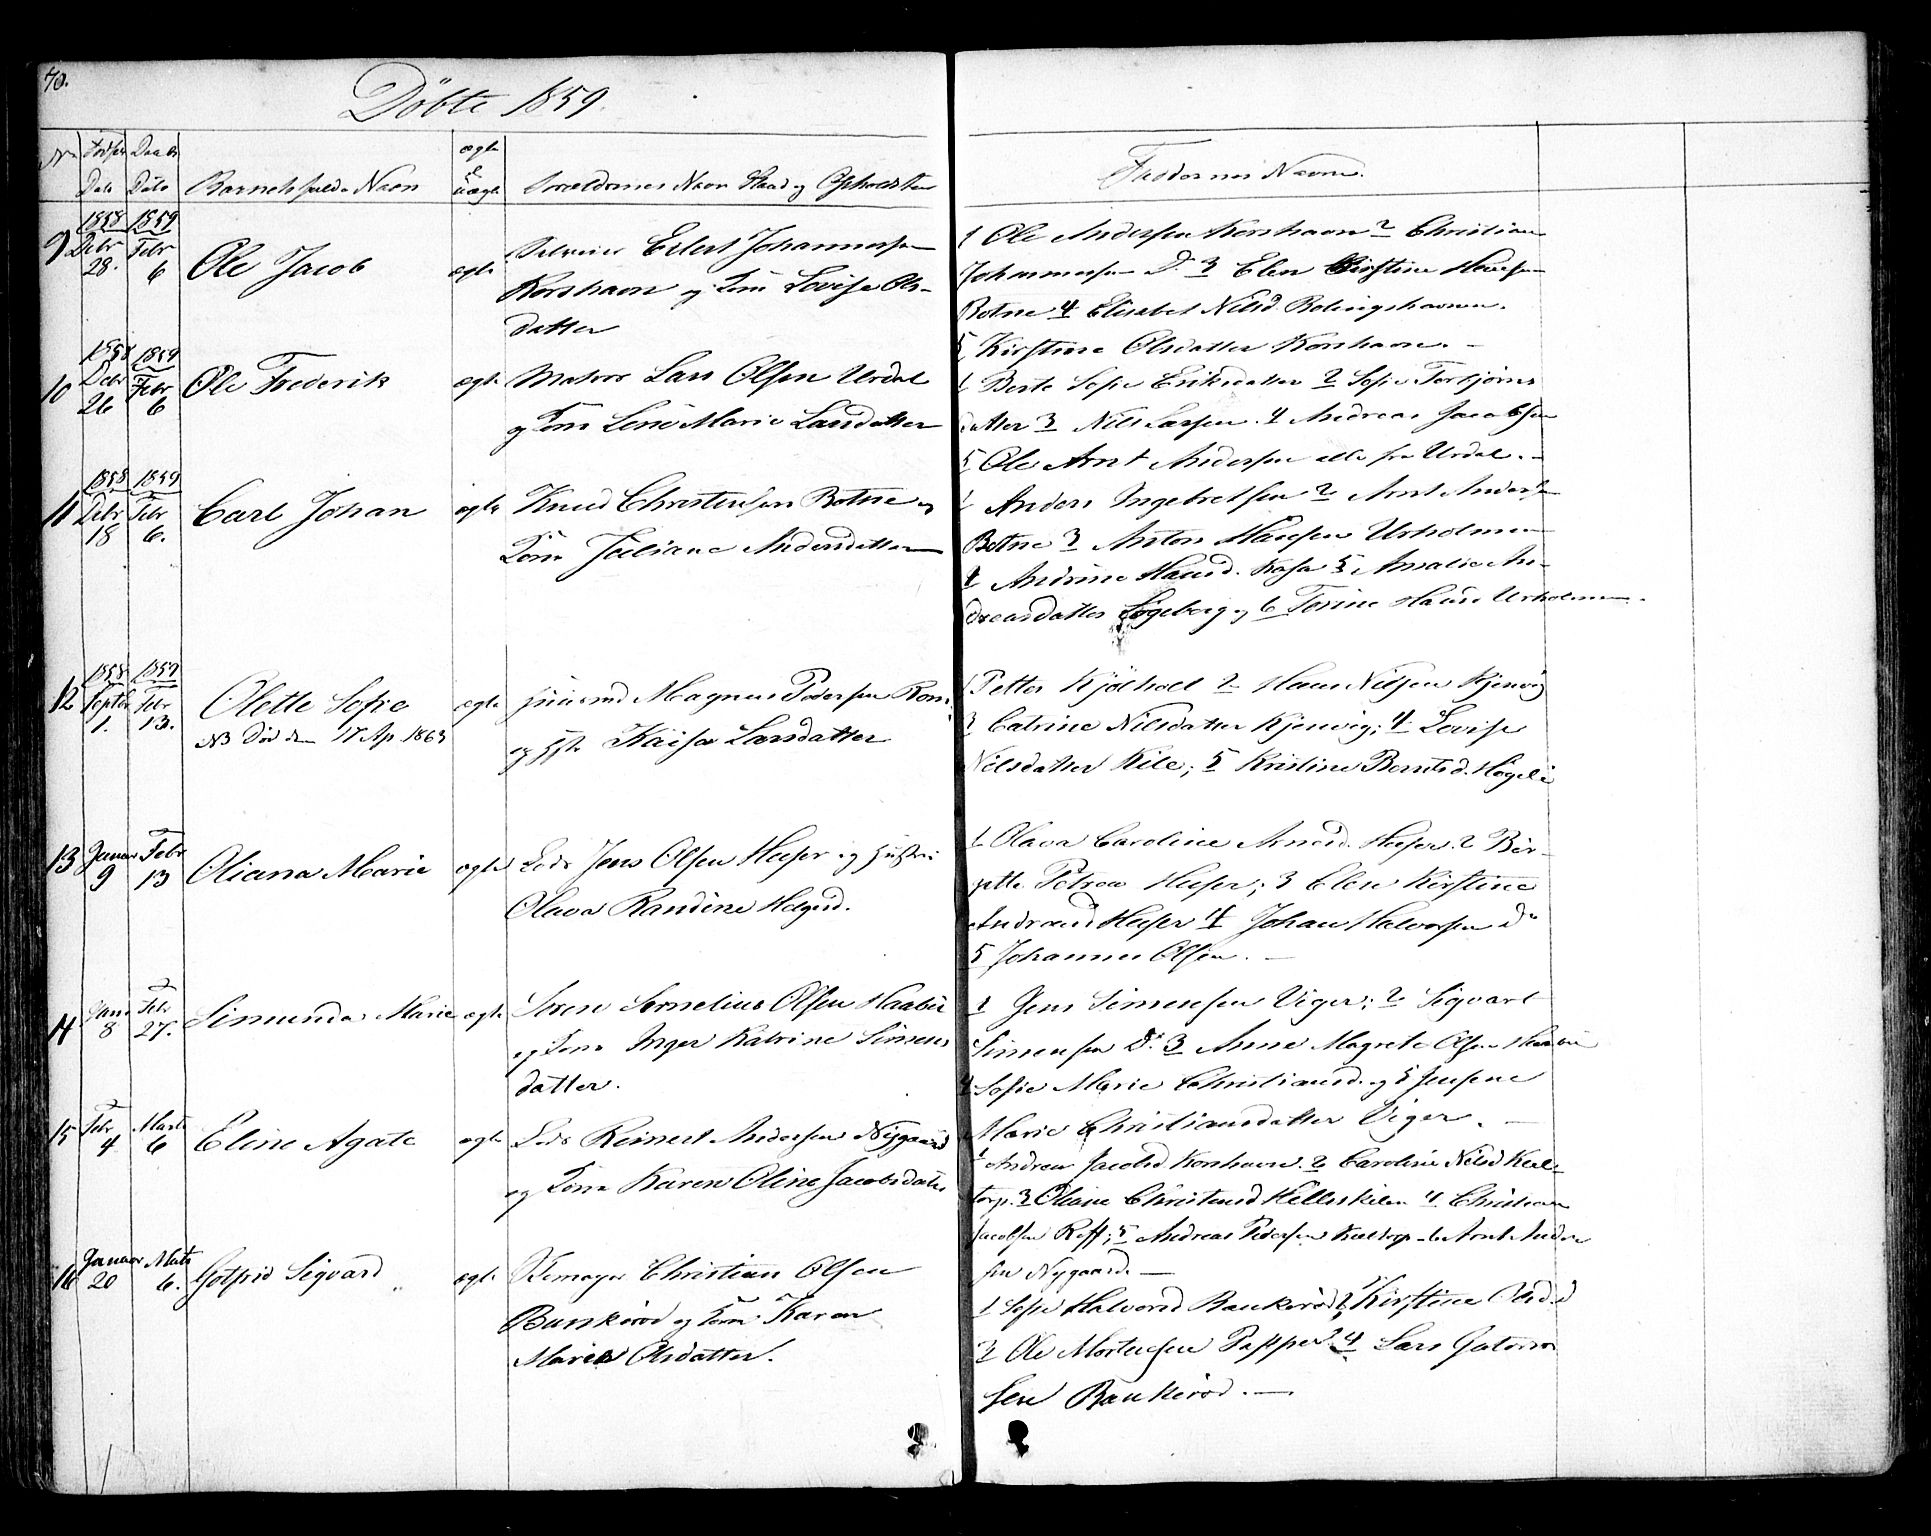 70.
Döbte 1859.
No Fødsels Daabs ægte
Dato Dato Barnets fulde Navn uægte Forældrenes Navn Stand og Opholdsted
Faddernes Navne.
1858 1859
9 Debr Febr
28. 6 Ole Jacob ægte Eilert Johannessen
Korshavn og Kone Lovise Ols-
datter
1 Ole Andersen Korshavn 2 Christian
Johannessen Do 3 Elen Kirstine Hansen
Botne 4 Elisabet Nilsd.
5 Kirstine Olsdatter Korshavn. -
1858 1859
10 Debr Febr
26 6 Ole Frederik ægte Matros Lars Olsen Urdal
og Kone Lene Marie Larsdatter
1 Berte Sofie Eriksdatter 2 Sofie Torbjörns
datter 3 Nils Larsen. 4 Andreas Jacobsen
5 Ole Arnt Andersen alle fra Urdal. -
1858 1859
11 Debr Febr
18 6. Carl Johan ægte Knud Christensen Botne og
Kone Juliane Andersdatter
1 Anders Ingebretsen 2 Arnt Andersen
Botne 3 Anton Hansen Urholmen
4 Andrine Hansd. Kasa 5 Amalie An-
dreasdatter og 6 Torine Hansd Urholmen.
1858 1859
12 Septbr Febr
1. 13. Olette Sofie ægte Huusmd Magnus Pedersen
NB Död den 17 Ap. 1863
og Kaisa Larsdatter
1 Petter Kjölholt 2 Hans Nilsen Kjenvig
3 Catrine Nilsdatter Kjenvig; 4 Lovise
Nilsdatter Kile; 5 Kristine Berntsd.
13 Januar Febr
9 13 Oliana Marie ægte Lods Jens Olsen Huser og Hustru
Olava Randine Helgsd.
1 Olava Caroline Arnesd. Huser. 2 Bir-
gitte Petrea Huser; 3 Elen Kirstine
Huser 4 Johan Halvorsen do
5 Johannes Olsen. -
14 Janr Febr
8 27. Simunda Marie ægte Sören Sornelius Olsen Haabu
og Kone Inger Katrine Simens
datter.
1 Jens Simensen Viger; 2 Sigvart
Simensen Do. 3 Anne Magrete Olsen
4 Sofie Marie Christiansd. og 5
Marie Christiansdatter Viger. -
15 Febr Marts
4 6 Eline Agate ægte Lods Reinert Andersen Nygaard
og Kone Karen Oline Jacobsdatter
1 Andrea Jacobsd Korshavn. 2 Caroline Nilsd
torp. 3 Oliane 4 Christian
Jacobsen Röff; 5 Andreas Pedersen 6 Arnt Ander
sen Nygaard. -
16 Januar Marts
20 6. Gotfrid Sigvard ægte Christian Olsen
Bankerod og Kone Karen
Maria Olsdatter.
1 Sofie Halvorsd Bankerod 2 Kirstine Olsd.
Ole Mortensen Papper 4 Lars
sen Bankerod. -